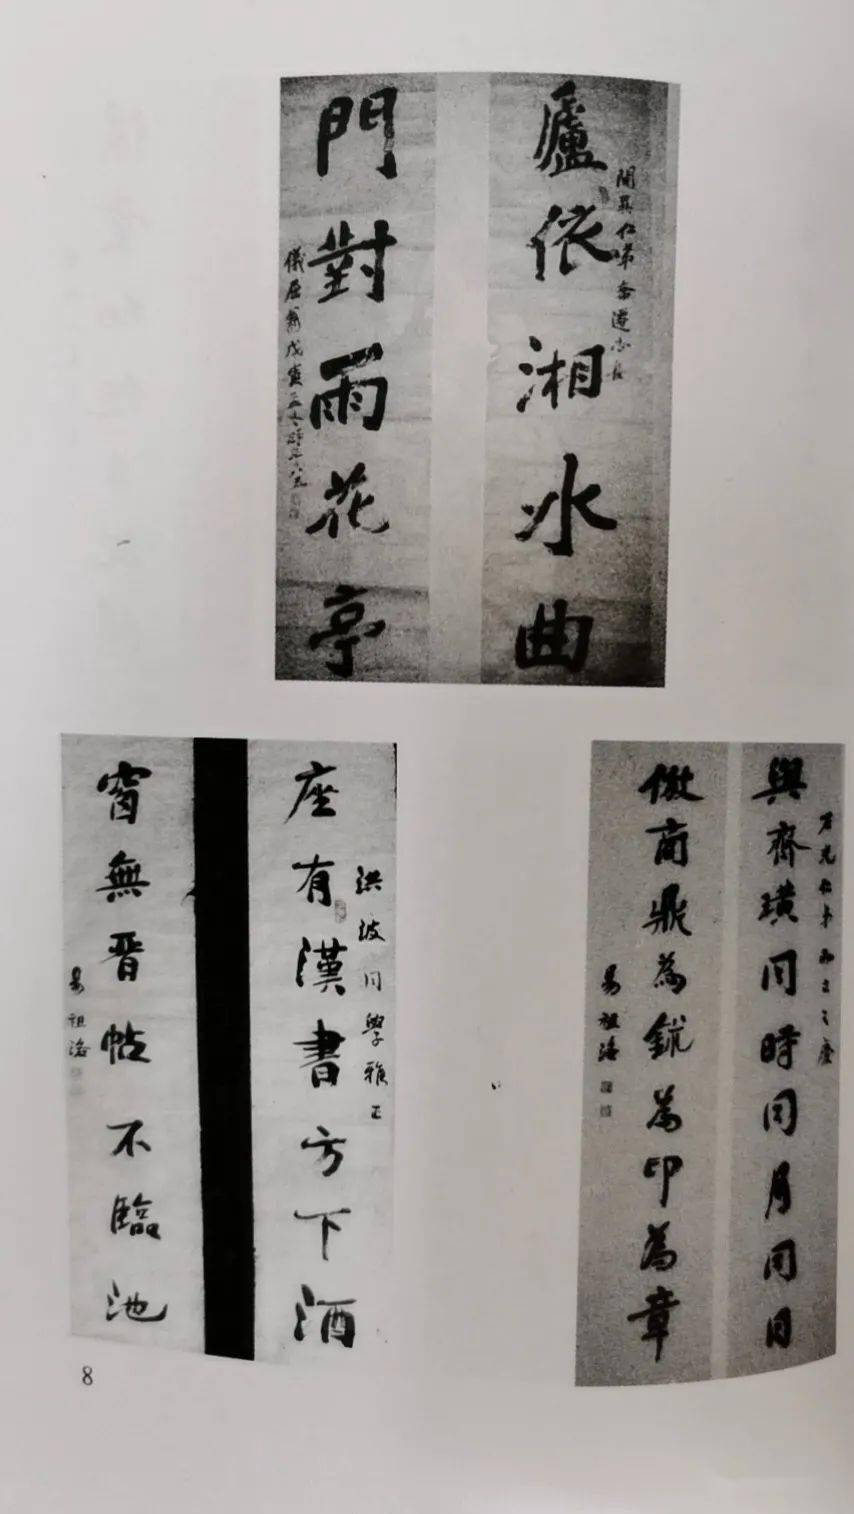 廬依湘水曲
門對雨花亭
座有漢書方下酒
洪波同學雅正
窗無晋帖不臨池
易祖洛
與齊璜同時同月同日
倣商鼎為鉥為印為章
易祖洛
8